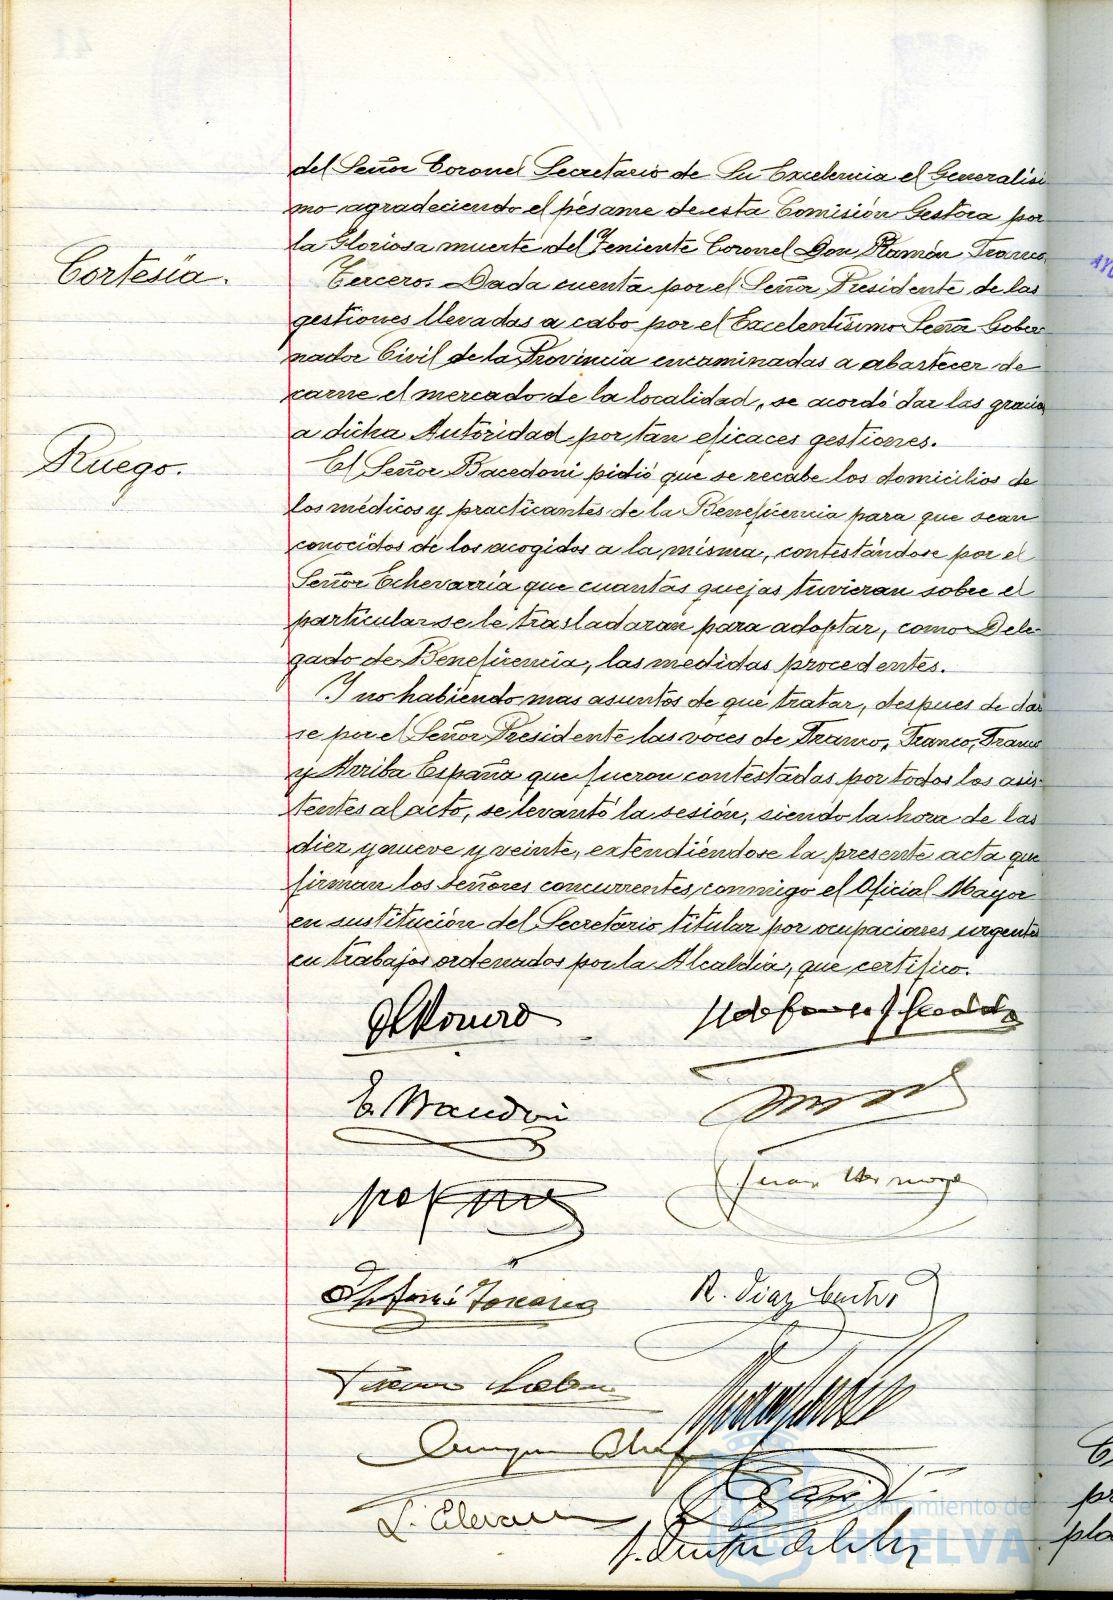 del Señor Coronel Secretario de Su Excelencia el Generalísi
mo agradeciendo el pésame de esta Comisión Gestora por
la Gloriosa muerte del Teniente Coronel Don Ramón Franco.
Cortesía.
Tercero. Dada cuenta por el Señor Presidente de las
gestiones llevadas a cabo por el Excelentísimo Señor Gober-
nador Civil de la Provincia encaminadas a abastecer de
carne el mercado de la localidad, se acordó dar las gracias
a dicha Autoridad por tan eficaces gestiones.
Ruego.
El Señor Bacedoni pidió que se recabe los domicilios de
los médicos y practicantes de la Beneficencia para que sean
conocidos de los acogidos a la misma, contestándose por el
Señor Echevarría que cuantas quejas tuvieran sobre el
particular se le trasladaran para adoptar, como Dele-
gado de Beneficencia, las medidas procedentes.
Y no habiendo mas asuntos de que tratar, despues de dar
se por el Señor Presidente las voces de Franco, Franco, Franco
y Arriba España que fueron contestadas por todos los asis-
tentes al acto, se levantó la sesión, siendo la hora de las
diez y nueve y veinte, extendiéndose la presente acta que
firman los Señores concurrentes, conmigo el Oficial Mayor
en sustitución del Secretario titular por ocupaciones urgentes
en trabajos ordenados por la Alcaldía, que certifico.
R. Diaz
Ayuntamiento de
HUELVA